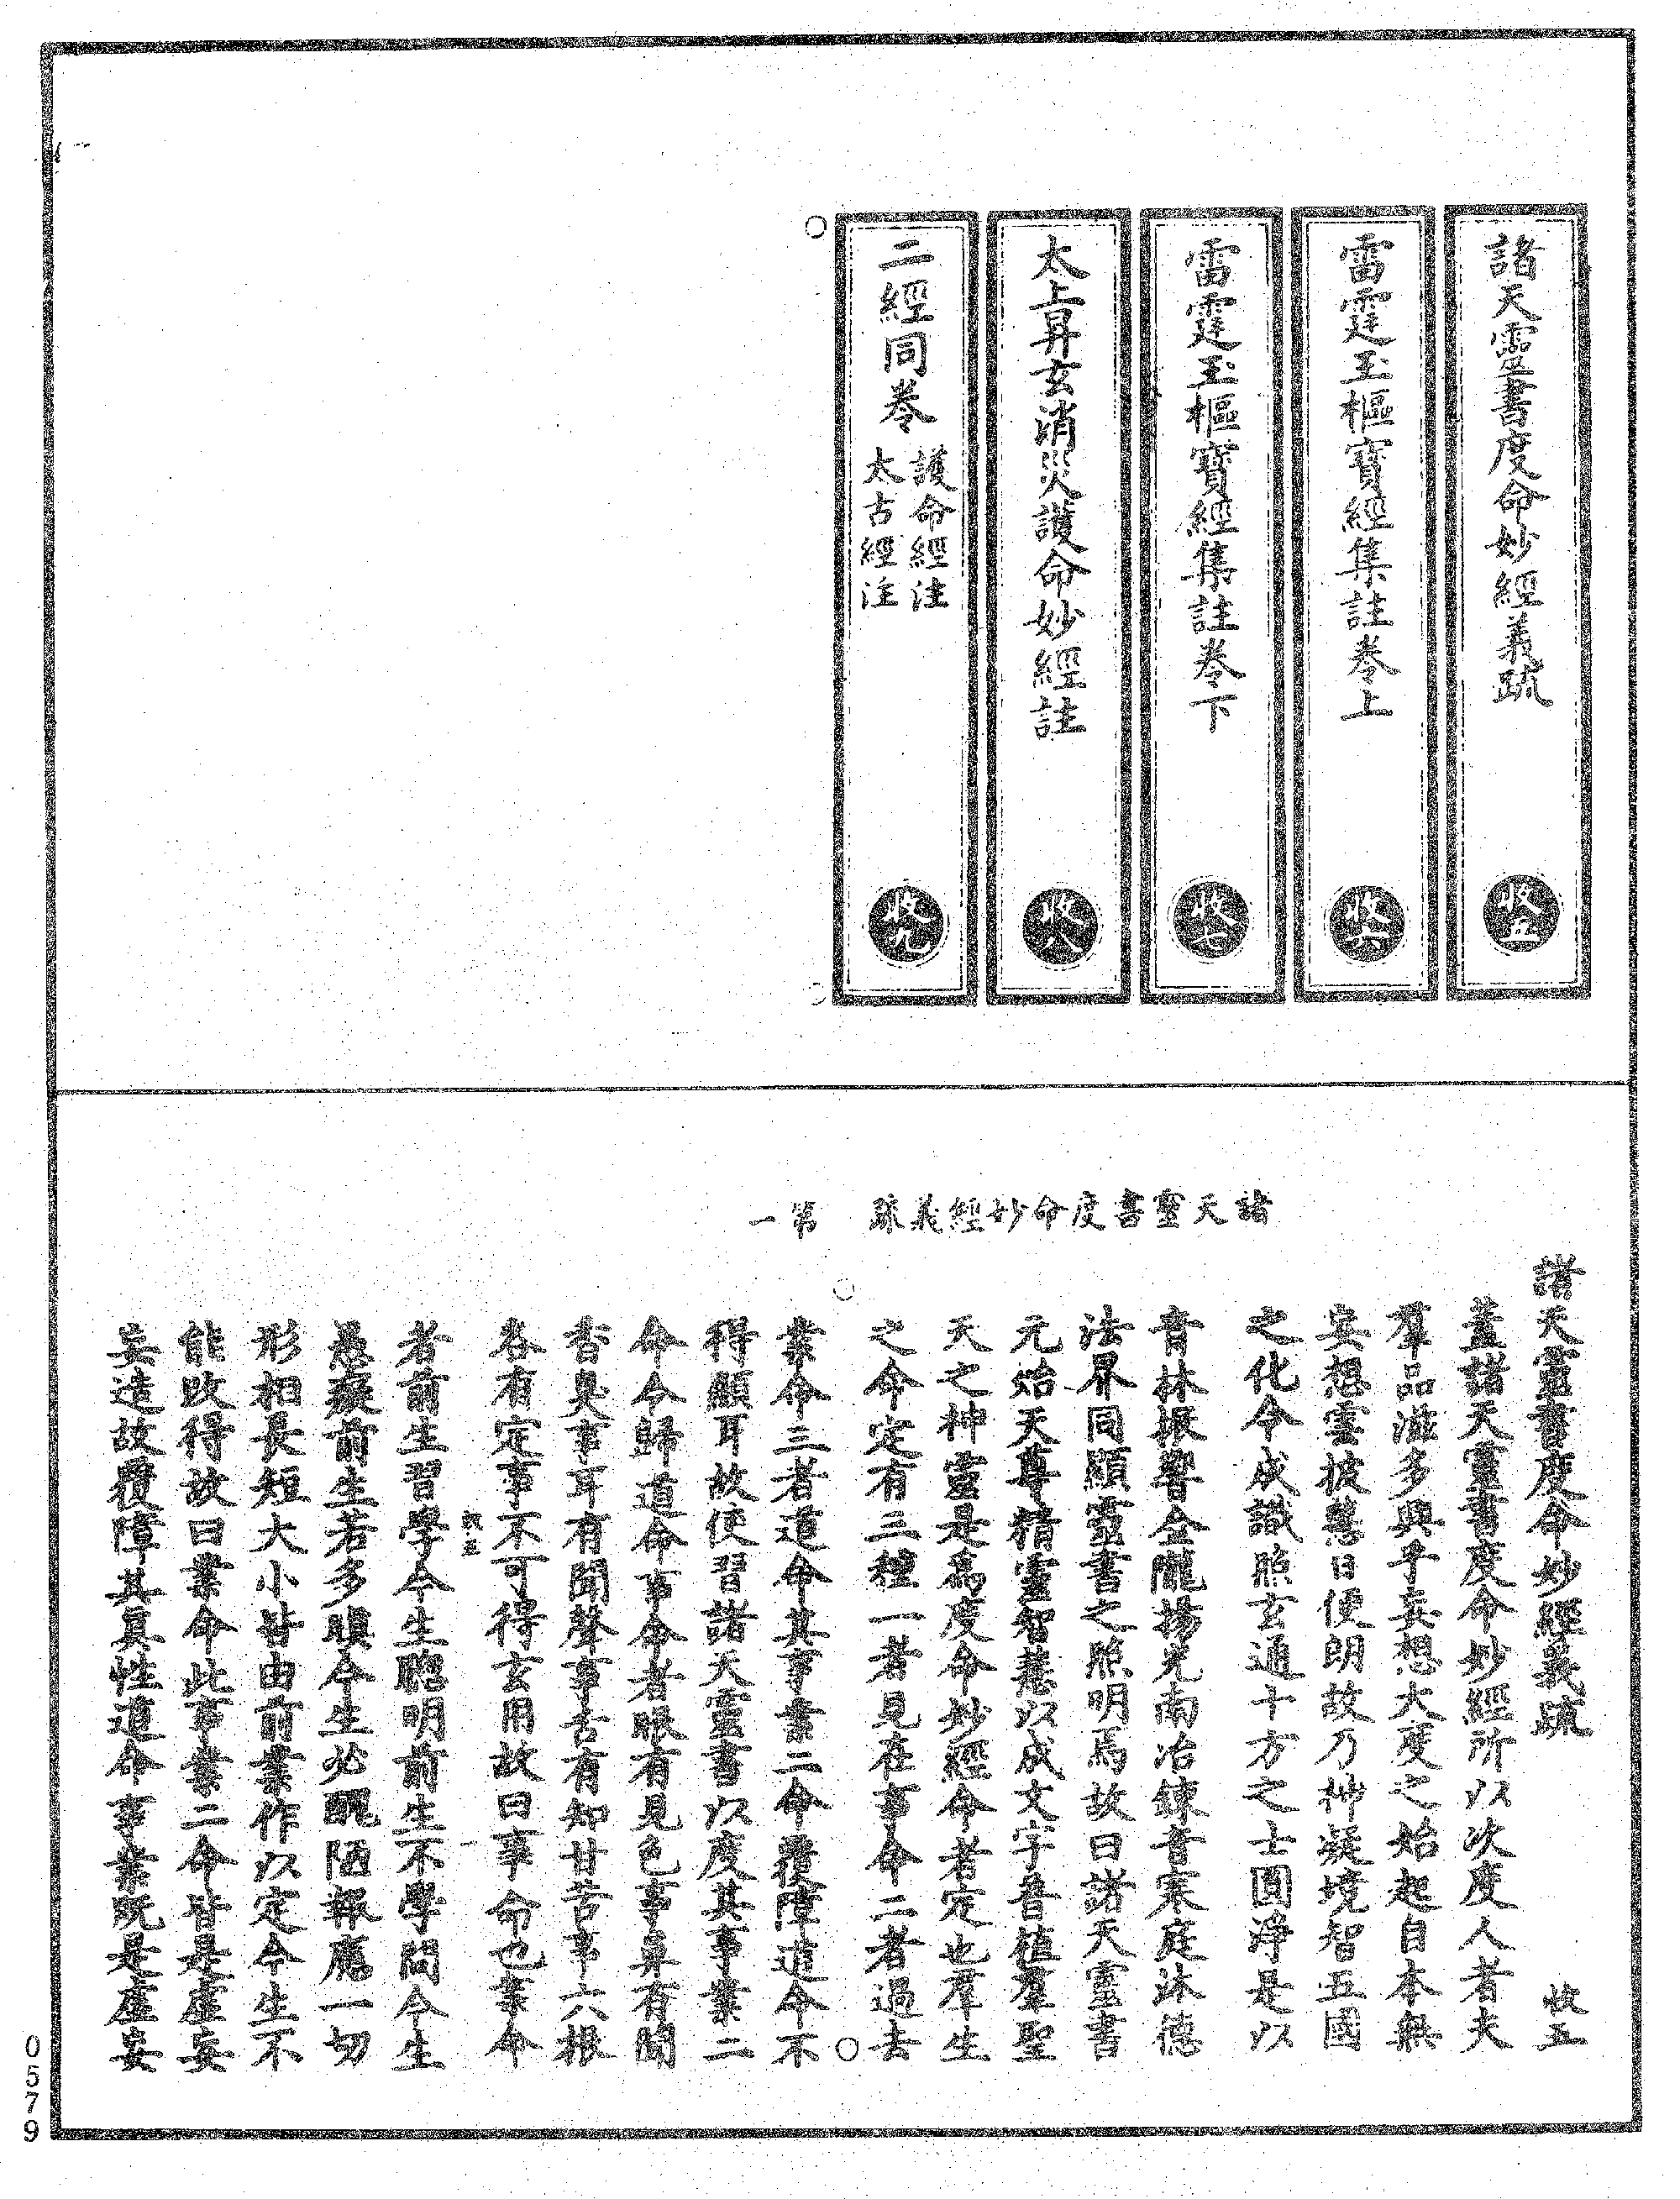 諸天靈書度命妙經義疏
收五
雷霆玉樞寶經集註卷上
收六
雷霆玉樞寶經集註卷下
收七
太上昇玄消災護命妙經註
收八
二經同卷
護命經注
太古經注
收九
諸天靈書度命妙經義疏　第一
諸天靈書度命妙經義疏　收五
蓋諸天靈書度命妙經所以次度人者夫
羣品滋多興乎妄想大度之始起自本無
妄想雲披慧日便朗故乃神凝境智五國
之化今成識照玄通十方之士圓淨是以
青林振響金隴揚光南冶鍊音寒庭沐德
法界同顯靈書之照明焉故曰諸天靈書
元始天尊精靈智慧以成文字普植羣聖
天之神靈是為度命妙經命者定也羣生
之命定有三種一者見在事命二者過去
業命三者道命其事業二命覆障道命不
得顯耳故使習諸天靈書以度其事業二
命令歸道命事命者眼有見色事鼻有聞
香臭事耳有聞聲事舌有知甘苦事六根
各有定事不可得玄用故曰事命也業命
收五
者前生習學今生聰明前生不學問今生
愚癡前生若多瞋今生必醜陋報應一切
形相長短大小皆由前業作以定今生不
能改得故曰業命此事業二命皆是虛妄
妄造故覆障其真性道命事業既是虛妄
0579